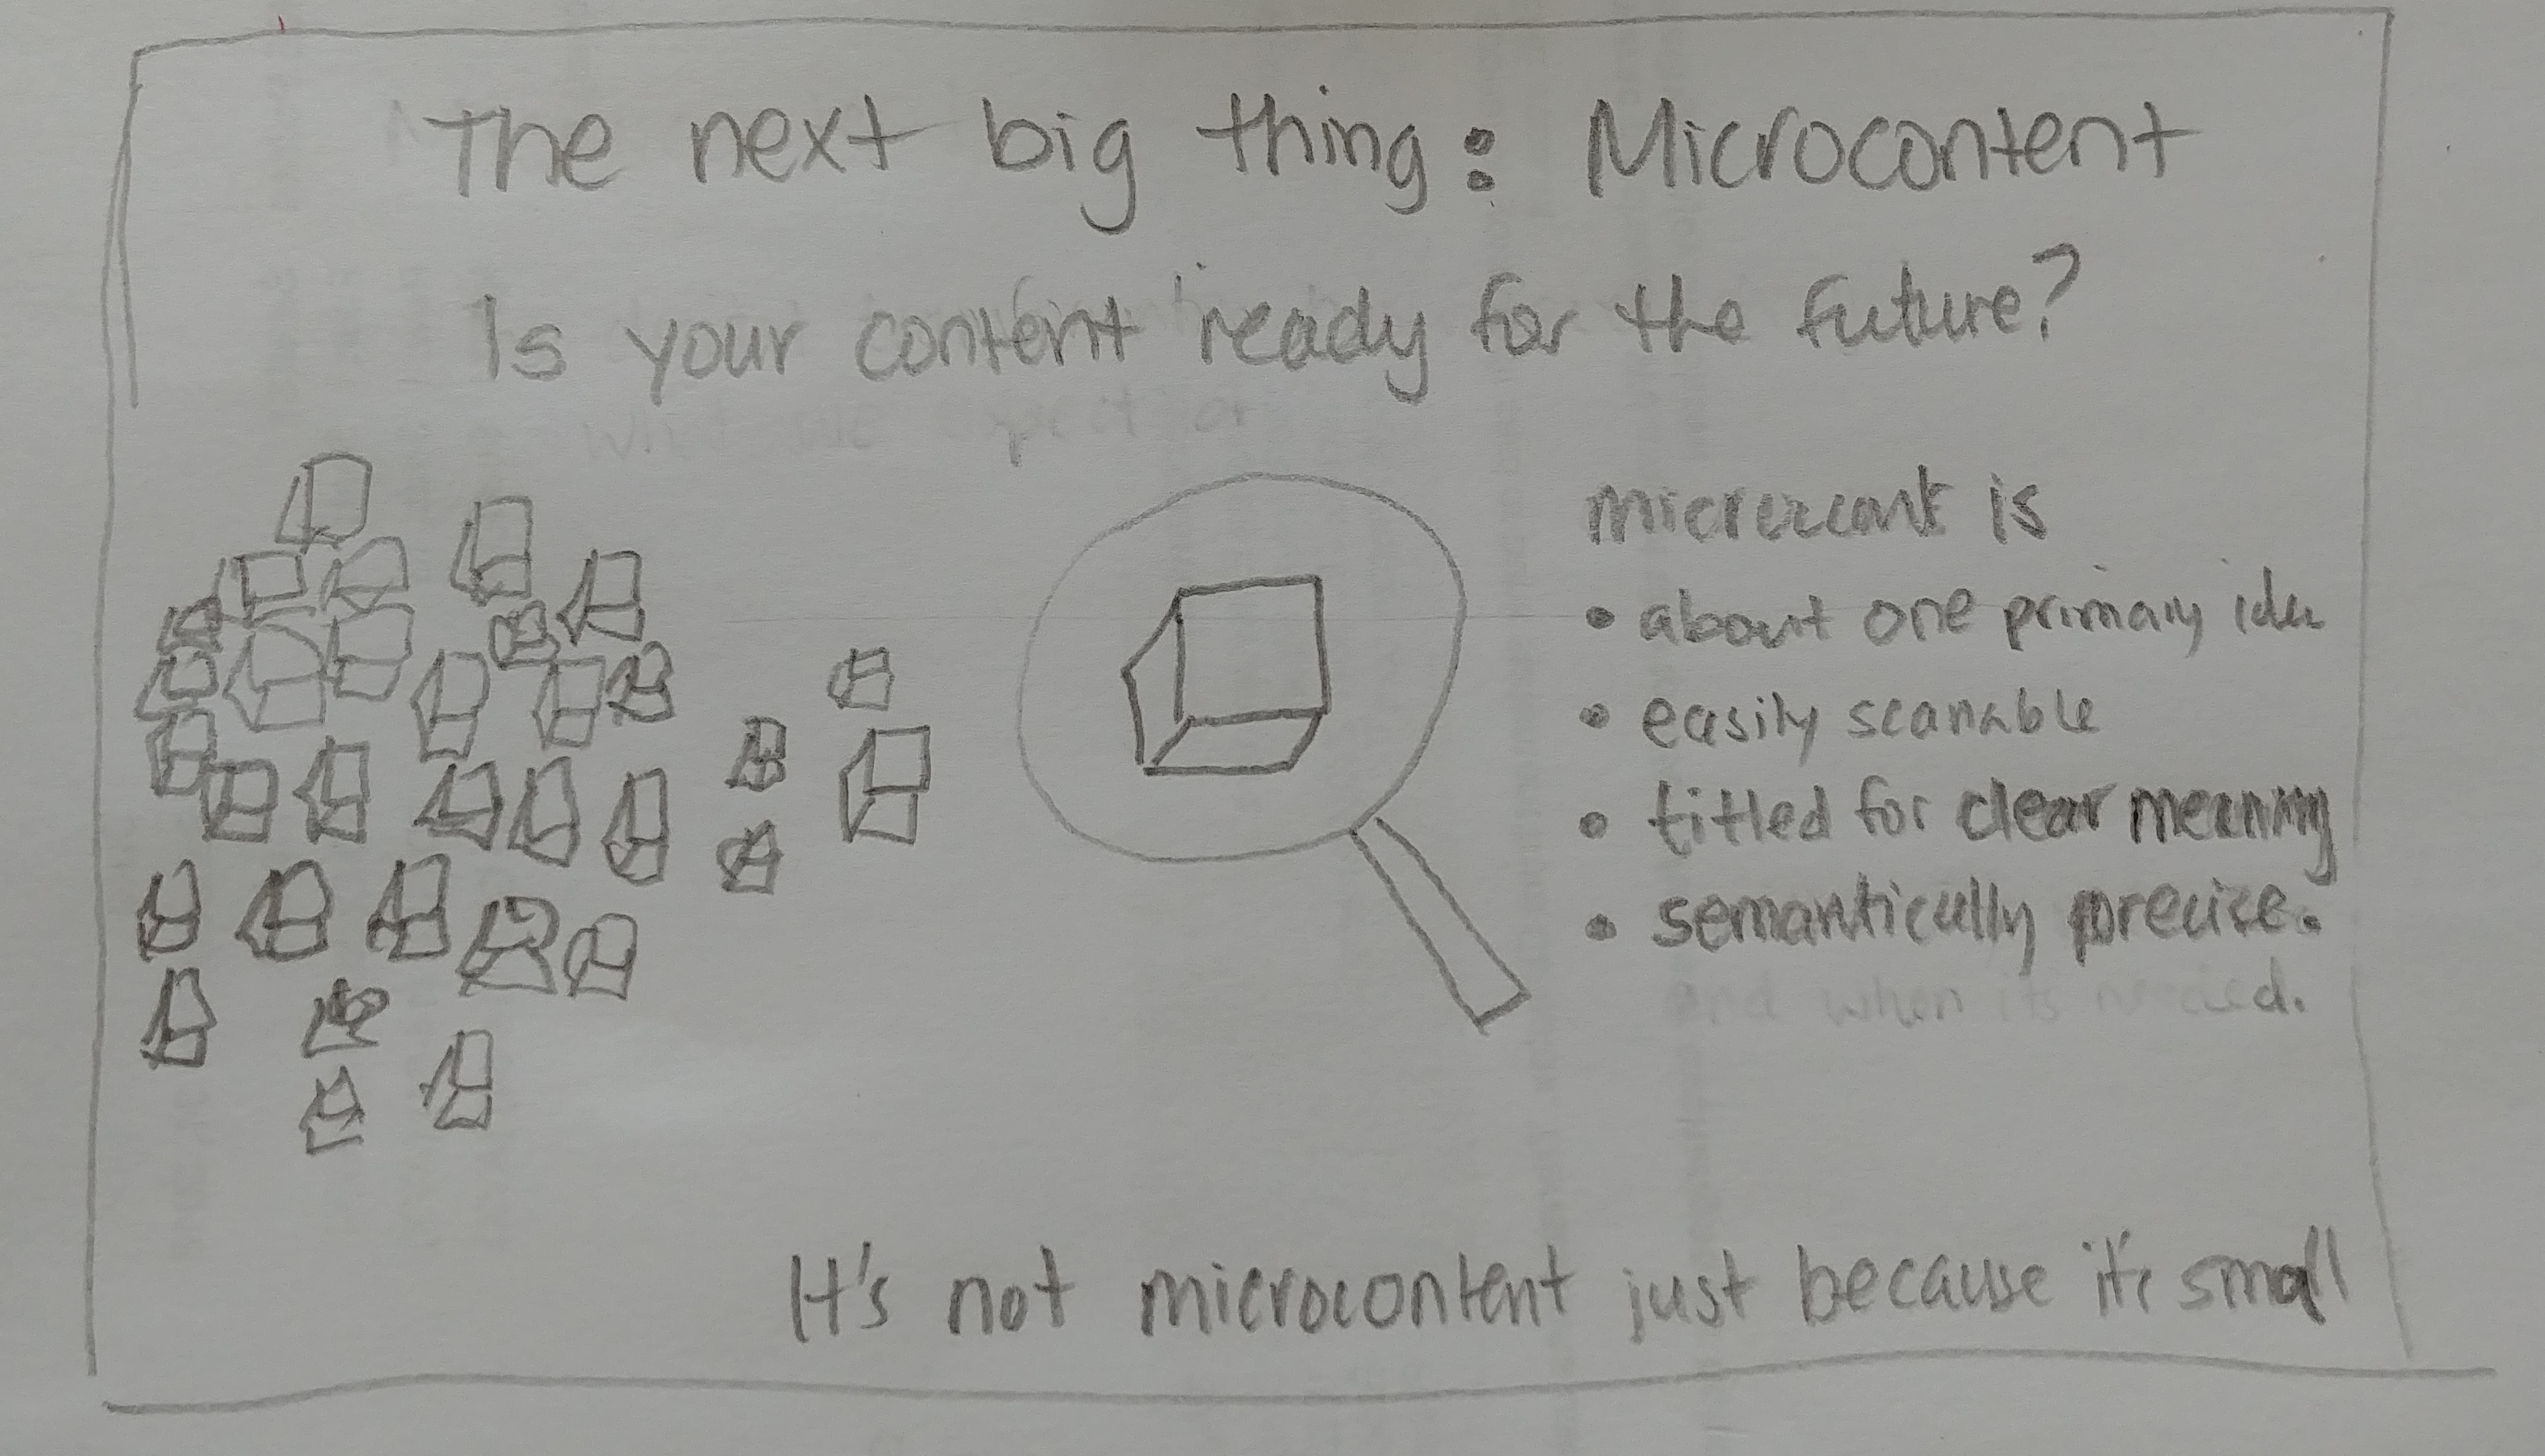 The next big thing: Microcontent
Is your content ready for the future?
is
• about one primary idea
• easily scanable
• titled for clear meaning
• semantically precise.
and when its needed.
It's not microcontent just because it's small